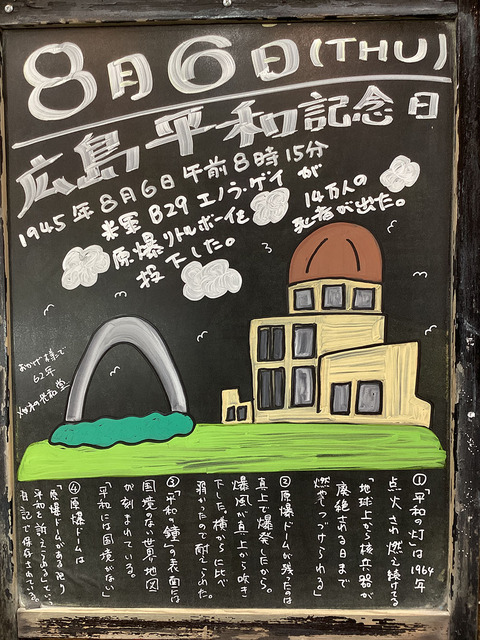 8月6日(THU)
広島平和記念日
1945年8月6日午前8時15分
米軍B29エノラ・ゲイが
原爆リトルボーイを
投下した。
14万人の
死者が出た。
おかげ様で
62年
①「平和の灯」は1964年
点火され燃え続けてる
「地球上から核兵器が
廃絶される日まで
燃やしつづけられる」
②原爆ドームが残ったのは
真上で爆発したから。
爆風が真上から吹き
下した。横からに比べ
弱かったので耐えられた。
③「平和の鐘」の表面には
国境のない世界地図
が刻まれている。
「平和には国境がない」
④原爆ドームは
「原爆ドームがある限り
平和を訴えつづける」